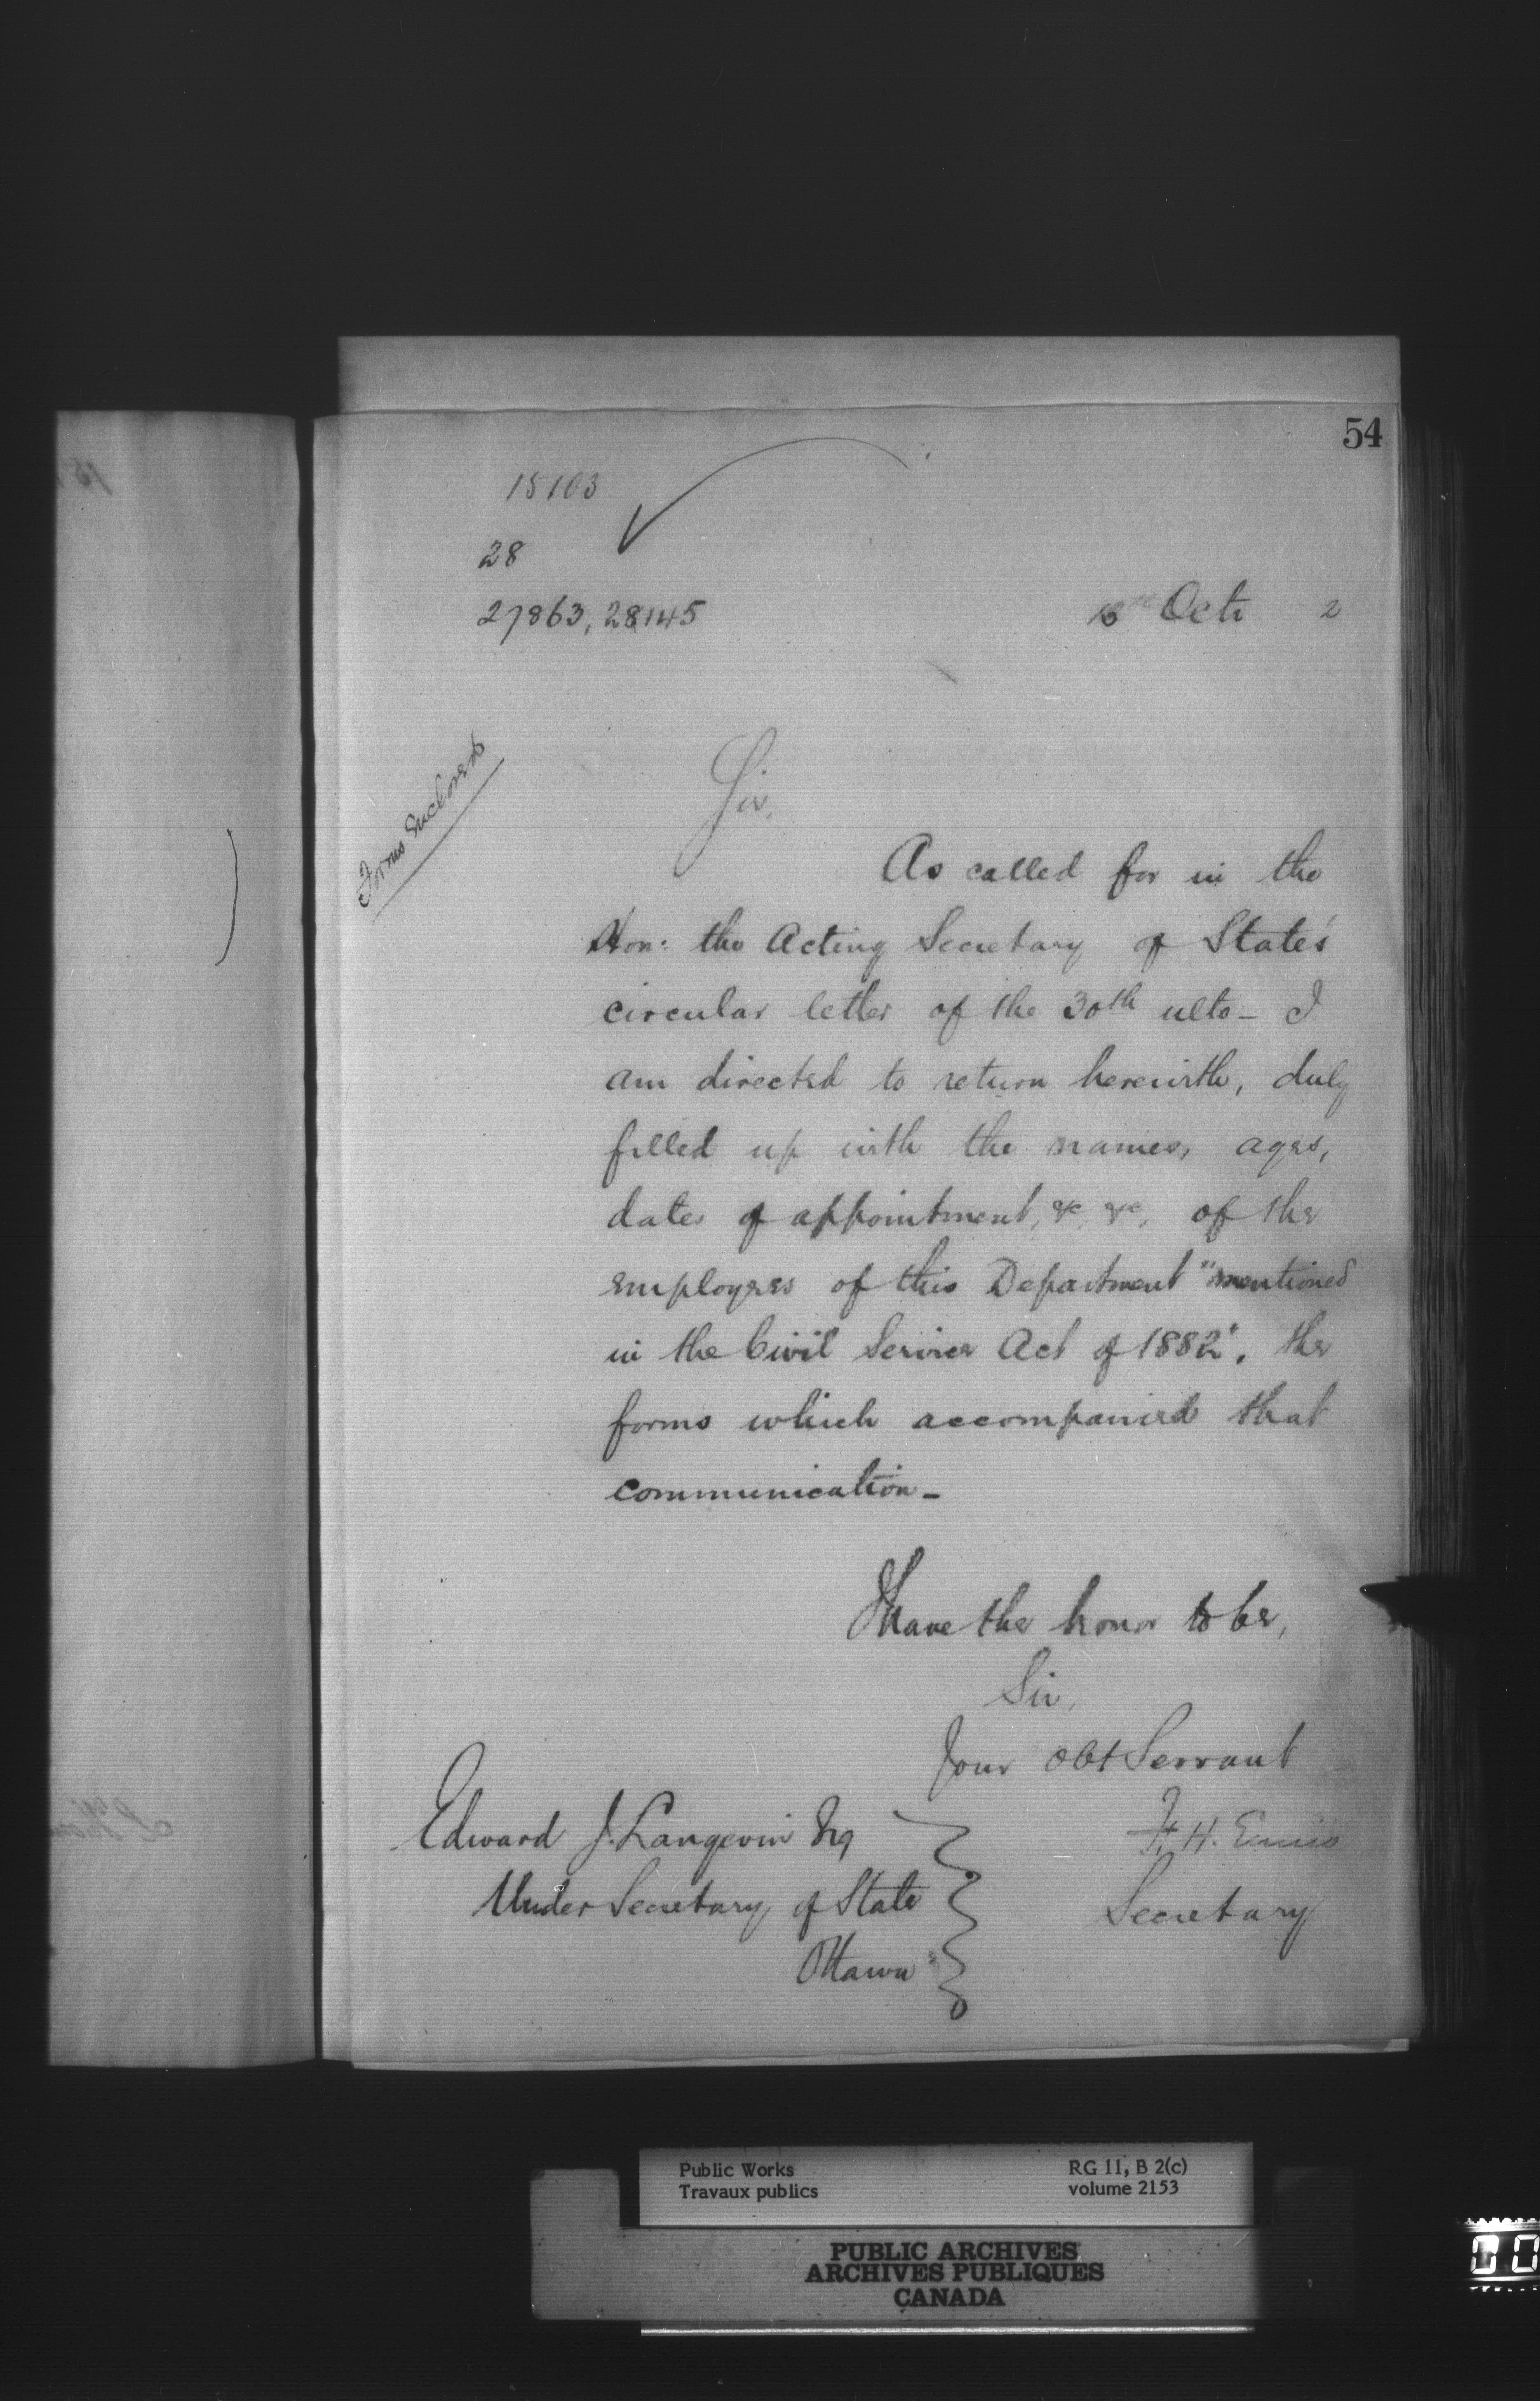 54
15103
28
27863, 28145
Octr 2
Forms Enclosed
Sir,
As called for in the
Hon: the Acting Secretary of State's
circular letter of the 30th ulto - I
am directed to return herewith, duly
filled up with the names, ages,
dates of appointment, &c, &c, of the
employees of this Department "mentioned
in the Civil Service Act of 1882", the
forms which accompanied that
communication -
I have the honor to be,
Sir,
Your Obt Servant
F. H. Ennis
Secretary
Edward J. Langevin Esq
Under Secretary of State
Ottawa
Public Works
Travaux publics
RG 11, B 2(c)
volume 2153
PUBLIC ARCHIVES
ARCHIVES PUBLIQUES
CANADA
00